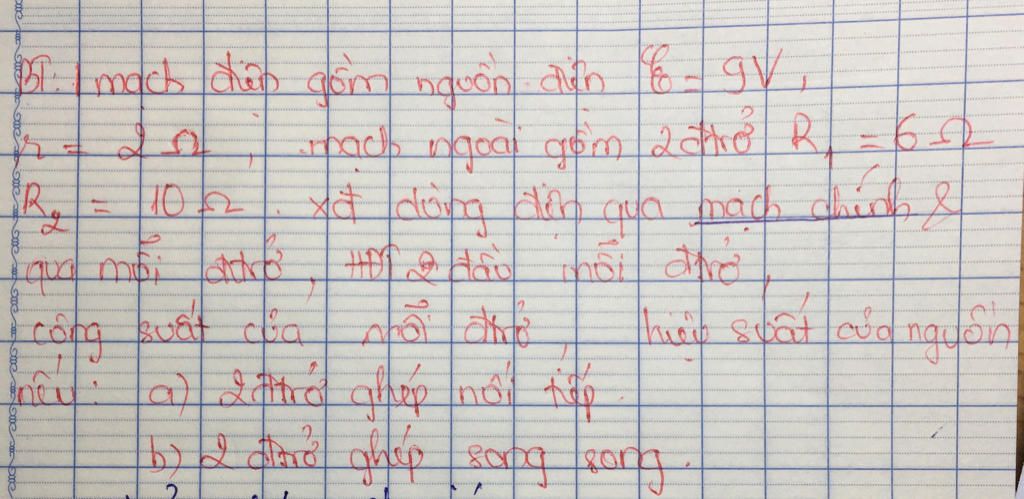 BT: 1 mạch điện gồm nguồn điện ℰ = 9V,
r = 2 Ω, mạch ngoài gồm 2 đtrở R₁ = 6 Ω
R₂ = 10 Ω. xđ dòng điện qua mạch chính &
qua mỗi đtrở, HĐT 2 đầu mỗi đtrở,
công suất của mỗi đtrở, hiệu suất của nguồn
nếu: a) 2 đtrở ghép nối tiếp.
b) 2 đtrở ghép song song.